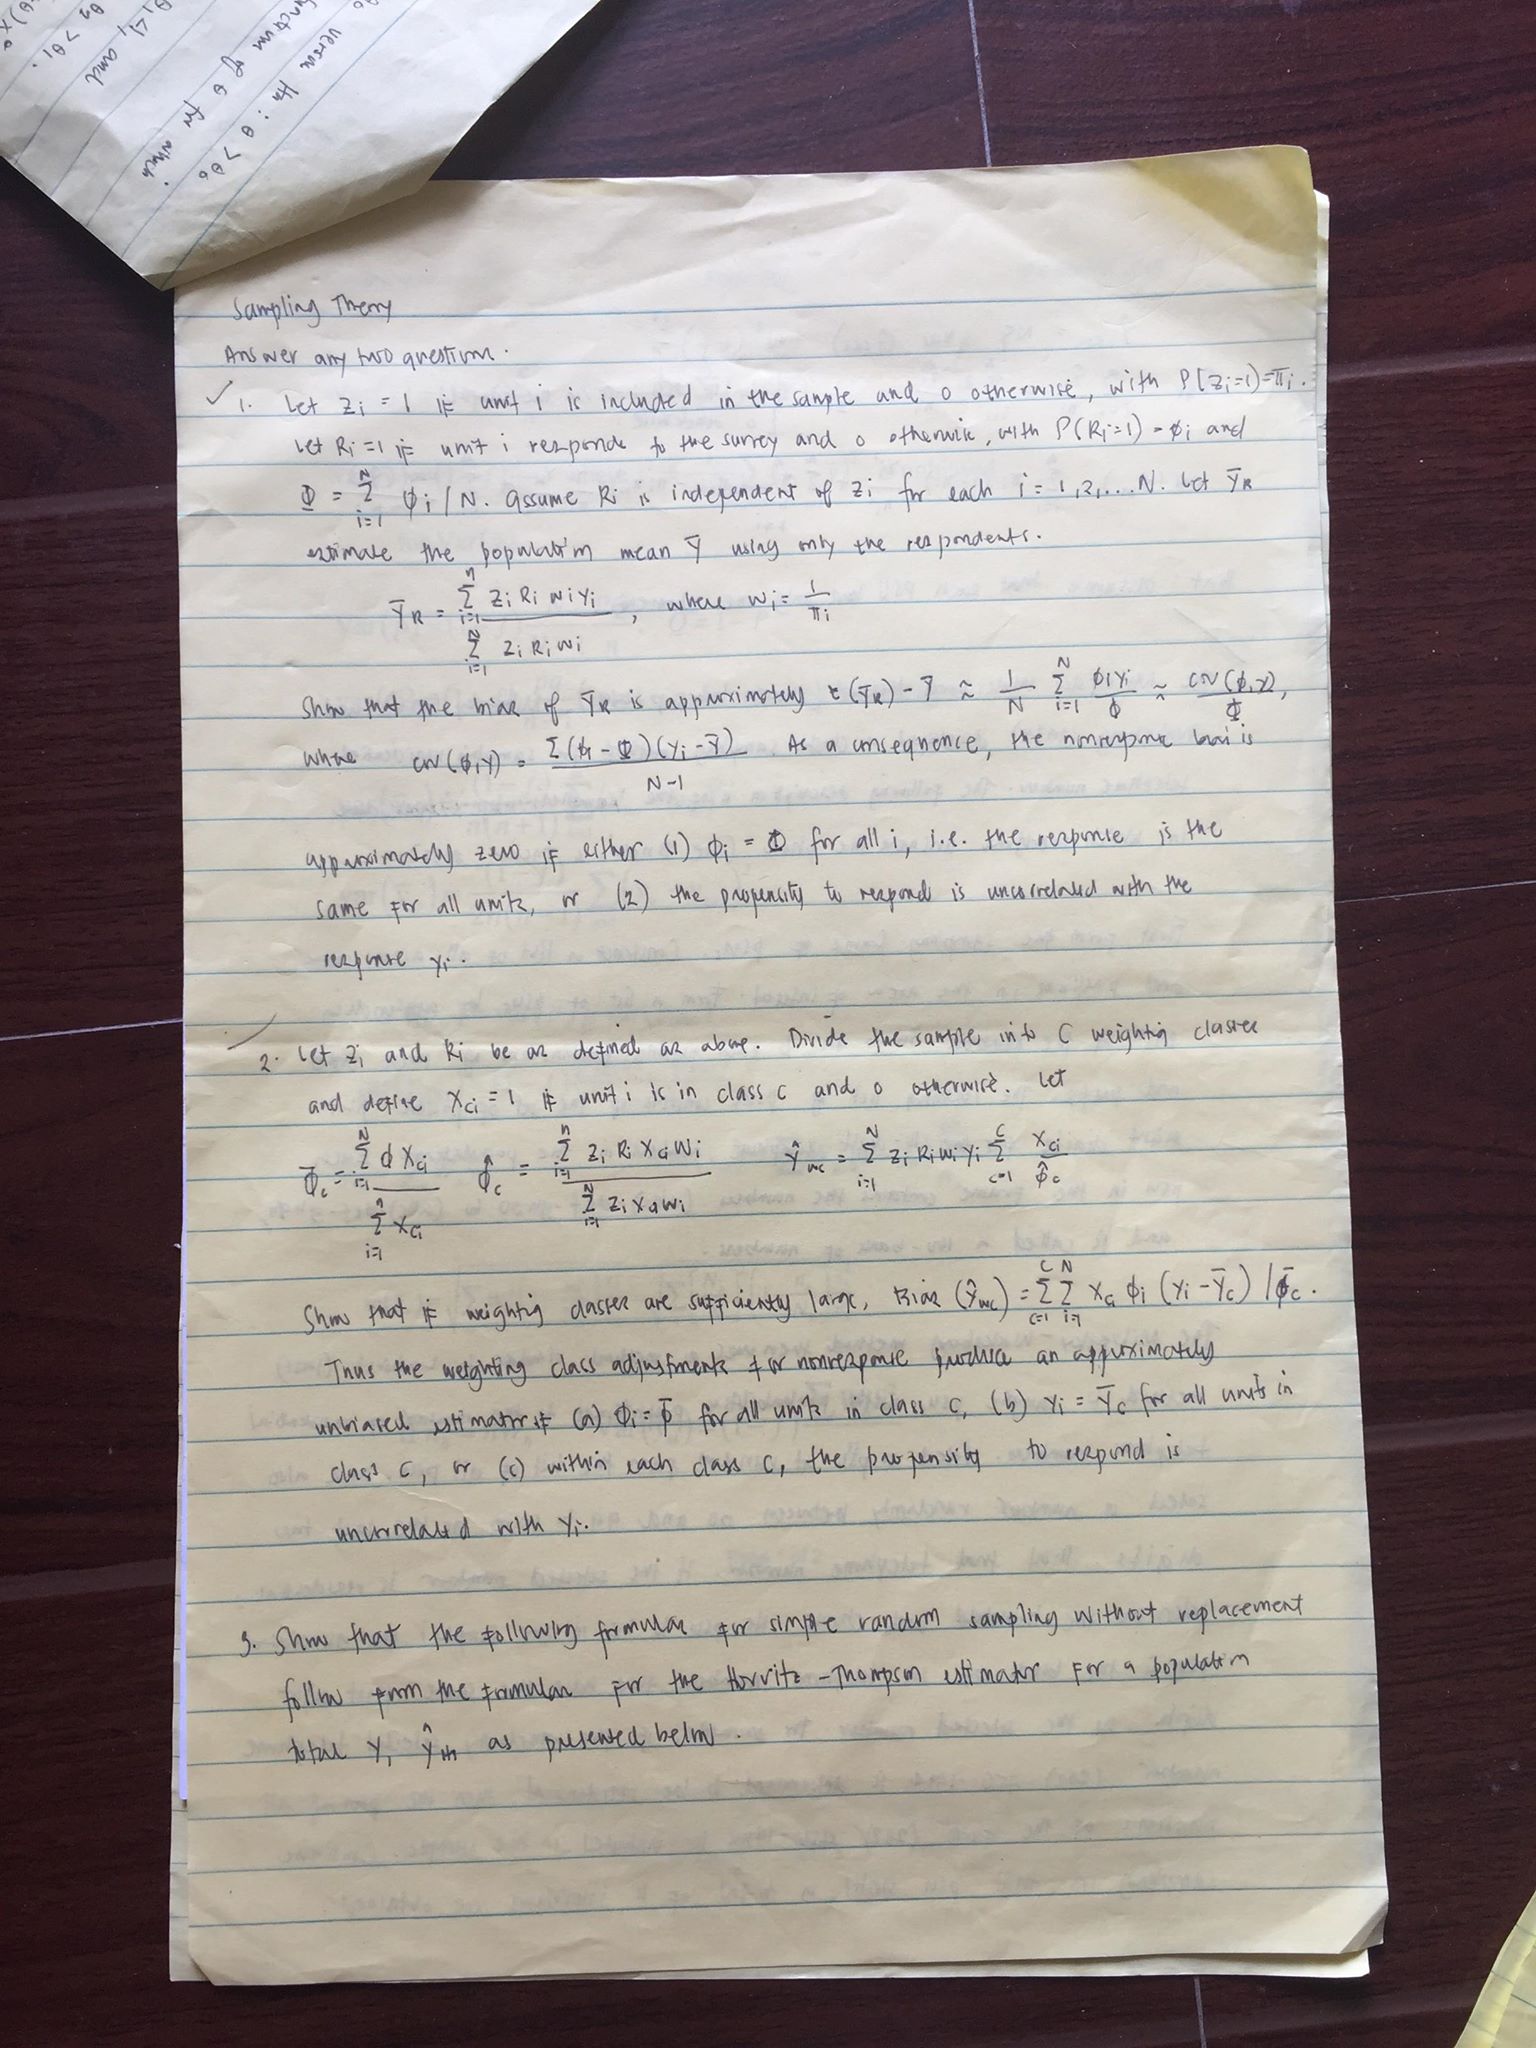 versus Ha: θ > θ0
function of θ for which
θ1 <1, and
θ2 > θ1.
Sampling Theory
Answer any two question.
✓ 1. Let Zi = 1 if unit i is included in the sample and 0 otherwise, with P(Zi=1)=πi.
Let Ri=1 if unit i responds to the survey and 0 otherwise, with P(Ri=1) = φi and
Φ = Σ_{i=1}^{N} φi / N. Assume Ri is independent of Zi for each i = 1,2,... N. Let ȲR
estimate the population mean Ȳ using only the respondents.
ȲR = Σ_{i=1}^{n} Zi Ri wi yi / Σ_{i=1}^{N} Zi Ri wi , where wi = 1/πi
Show that the bias of ȲR is approximately E(ȲR) - Ȳ ≈ 1/N Σ_{i=1}^{N} φi yi / Φ ≈ cov(φ,y)/Φ,
where cov(φ,y) = Σ(φi - Φ)(yi - Ȳ) / N-1 . As a consequence, the nonresponse bias is
approximately zero if either (1) φi = Φ for all i, i.e. the response is the
same for all units, or (2) the propensity to respond is uncorrelated with the
response yi.
2. Let Zi and Ri be as defined as above. Divide the sample into C weighting classes
and define Xci = 1 if unit i is in class c and 0 otherwise. Let
Φ̄c = Σ_{i=1}^{N} φ Xci / Σ_{i=1}^{n} Xci φ̂c = Σ_{i=1}^{n} Zi Ri Xci wi / Σ_{i=1}^{N} Zi Xci wi Ŷwc = Σ_{i=1}^{N} Zi Ri wi yi Σ_{c=1}^{C} Xci / φ̂c
Show that if weighting classes are sufficiently large, Bias (Ŷwc) = Σ_{c=1}^{C} Σ_{i=1}^{N} Xci φi (yi - Ȳc) / φ̄c.
Thus the weighting class adjustments for nonresponse produce an approximately
unbiased estimator if (a) φi = φ̄ for all units in class c, (b) yi = Ȳc for all units in
class c, or (c) within each class c, the propensity to respond is
uncorrelated with yi.
3. Show that the following formulas for simple random sampling without replacement
follow from the formulas for the Horvitz-Thompson estimator for a population
total Y, ŶHT as presented below.